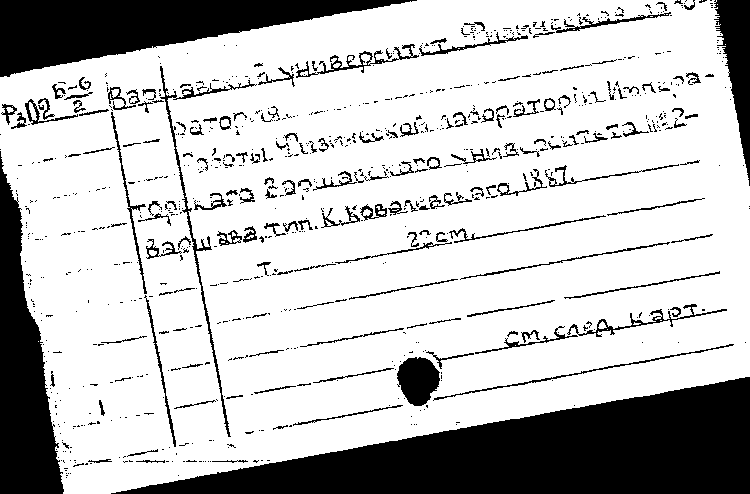 Р302 Б-6/2 Варшавский университет. Физическая лабо-
ратория.
Работы Физической лабораторіи Импера-
торскаго Варшавского университета №2-
Варшава, тип. К. Ковалевскаго, 1887.
т. 22 см.
см. след. карт.